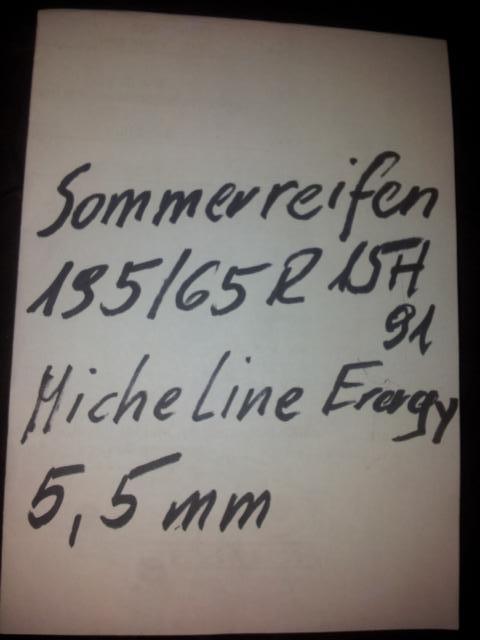 Sommerreifen
195/65R 15H
91
Micheline Energy
5,5 mm